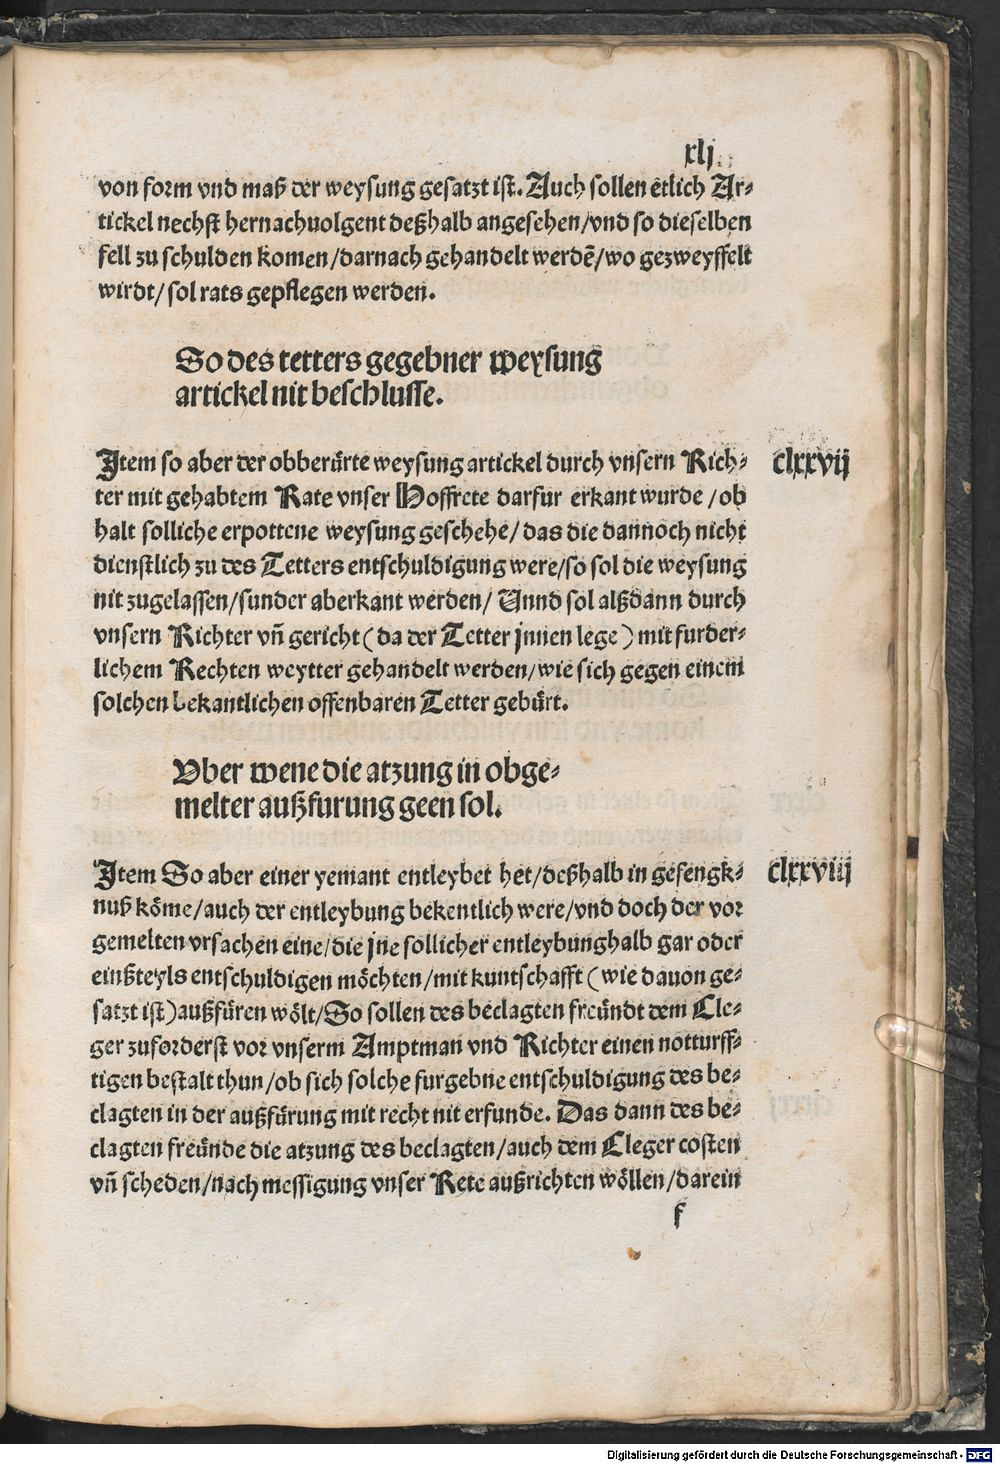 xlj
von form vnd maß der weysung gesatzt ist. Auch sollen etlich Ar-
tickel nechst hernachuolgent deßhalb angesehen/vnd so dieselben
fell zu schulden komen/darnach gehandelt werdē/wo gezweyffelt
wirdt/sol rats gepflegen werden.
So des tetters gegebner weysung
artickel nit beschlusse.
Item so aber der obberürte weysung artickel durch vnsern Rich-
clxxvij
ter mit gehabtem Rate vnser Hoffrete darfur erkant wurde/ob
halt solliche erpottene weysung geschehe/das die dannoch nicht
dienstlich zu des Tetters entschuldigung were/so sol die weysung
nit zugelassen/sunder aberkant werden/ Vnnd sol alßdann durch
vnsern Richter vn̄ gericht (da der Tetter jnnen lege) mit furder-
lichem Rechten weytter gehandelt werden/wie sich gegen einem
solchen bekantlichen offenbaren Tetter gebürt.
Vber wene die atzung in obge-
melter außfurung geen sol.
Item So aber einer yemant entleybet het/deßhalb in gefengk-
clxxviij
nuß köme/auch der entleybung bekentlich were/vnd doch der vor
gemelten vrsachen eine/die jne sollicher entleybunghalb gar oder
einßteyls entschuldigen möchten/mit kuntschafft (wie dauon ge-
satzt ist)außfüren wölt/So sollen des beclagten freündt dem Cle-
ger zuforderst vor vnserm Amptman vnd Richter einen notturff-
tigen bestalt thun/ob sich solche furgebne entschuldigung des be-
clagten in der außfürung mit recht nit erfunde. Das dann des be-
clagten freünde die atzung des beclagten/auch dem Cleger costen
vn̄ scheden/nach messigung vnser Rete außrichten wöllen/darein
f
Digitalisierung gefördert durch die Deutsche Forschungsgemeinschaft - DFG